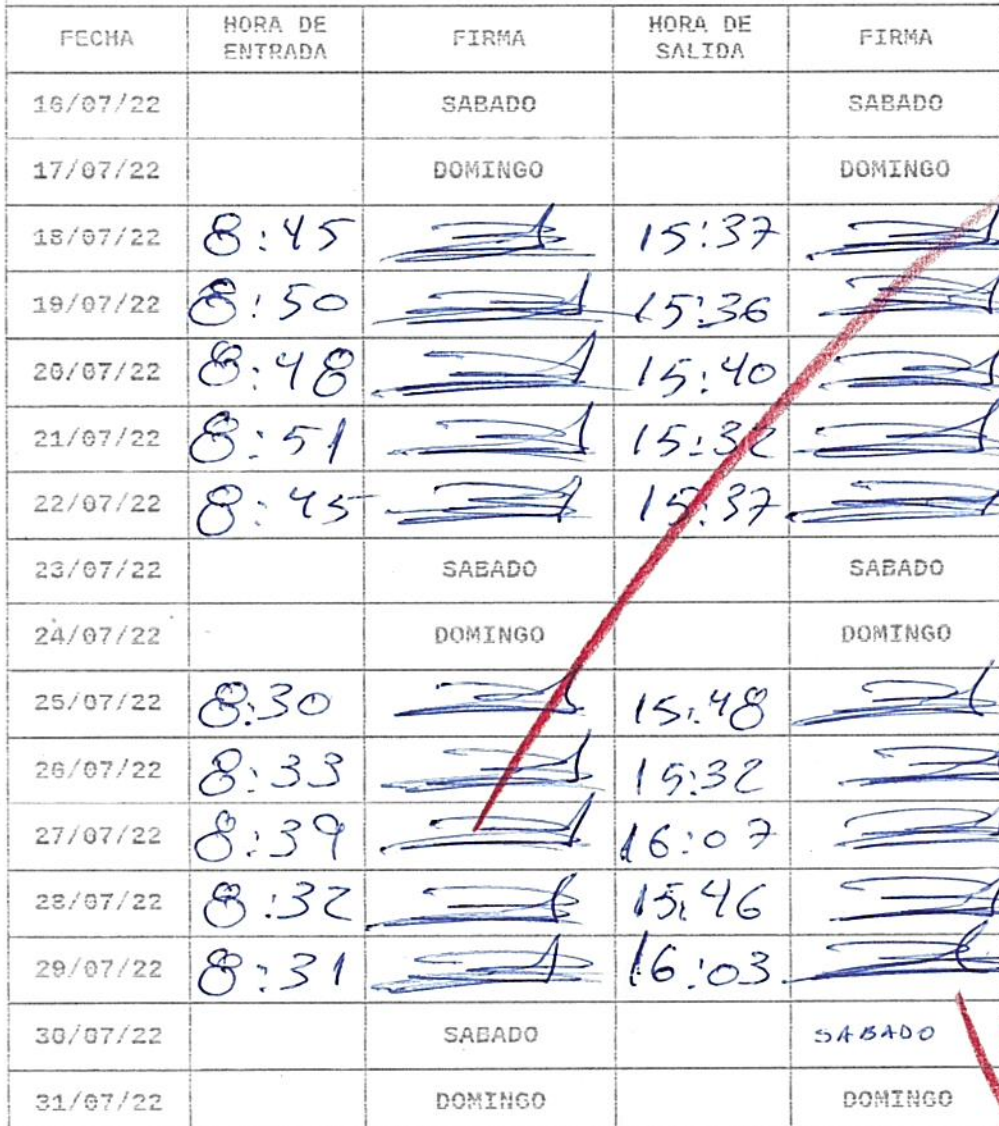 FECHA HORA DE ENTRADA FIRMA HORA DE SALIDA FIRMA
16/07/22 SABADO SABADO
17/07/22 DOMINGO DOMINGO
18/07/22 8:45 15:37
19/07/22 8:50 15:36
20/07/22 8:48 15:40
21/07/22 8:51 15:32
22/07/22 8:45 15:37
23/07/22 SABADO SABADO
24/07/22 DOMINGO DOMINGO
25/07/22 8:30 15:48
26/07/22 8:33 15:32
27/07/22 8:39 16:07
28/07/22 8:32 15:46
29/07/22 8:31 16:03
30/07/22 SABADO SABADO
31/07/22 DOMINGO DOMINGO